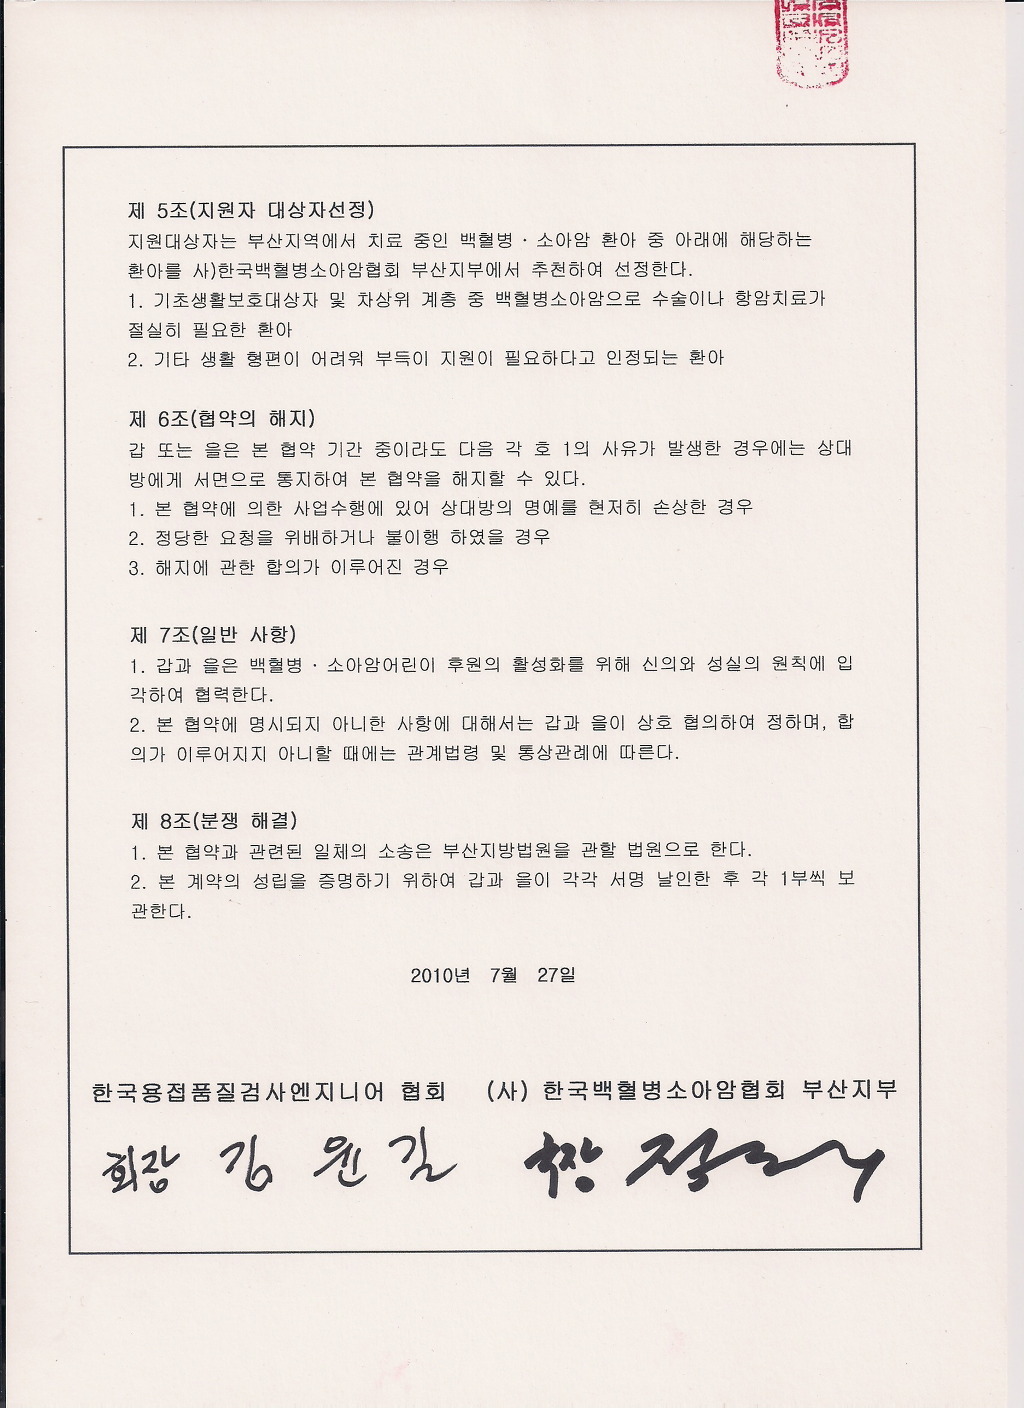 제 5조(지원자 대상자선정)
지원대상자는 부산지역에서 치료 중인 백혈병 · 소아암 환아 중 아래에 해당하는
환아를 사)한국백혈병소아암협회 부산지부에서 추천하여 선정한다.
1. 기초생활보호대상자 및 차상위 계층 중 백혈병소아암으로 수술이나 항암치료가
절실히 필요한 환아
2. 기타 생활 형편이 어려워 부득이 지원이 필요하다고 인정되는 환아
제 6조(협약의 해지)
갑 또는 을은 본 협약 기간 중이라도 다음 각 호 1의 사유가 발생한 경우에는 상대
방에게 서면으로 통지하여 본 협약을 해지할 수 있다.
1. 본 협약에 의한 사업수행에 있어 상대방의 명예를 현저히 손상한 경우
2. 정당한 요청을 위배하거나 불이행 하였을 경우
3. 해지에 관한 합의가 이루어진 경우
제 7조(일반 사항)
1. 갑과 을은 백혈병 · 소아암어린이 후원의 활성화를 위해 신의와 성실의 원칙에 입
각하여 협력한다.
2. 본 협약에 명시되지 아니한 사항에 대해서는 갑과 을이 상호 협의하여 정하며, 합
의가 이루어지지 아니할 때에는 관계법령 및 통상관례에 따른다.
제 8조(분쟁 해결)
1. 본 협약과 관련된 일체의 소송은 부산지방법원을 관할 법원으로 한다.
2. 본 계약의 성립을 증명하기 위하여 갑과 을이 각각 서명 날인한 후 각 1부씩 보
관한다.
2010년 7월 27일
한국용접품질검사엔지니어 협회 (사) 한국백혈병소아암협회 부산지부
회장 김 윤 길